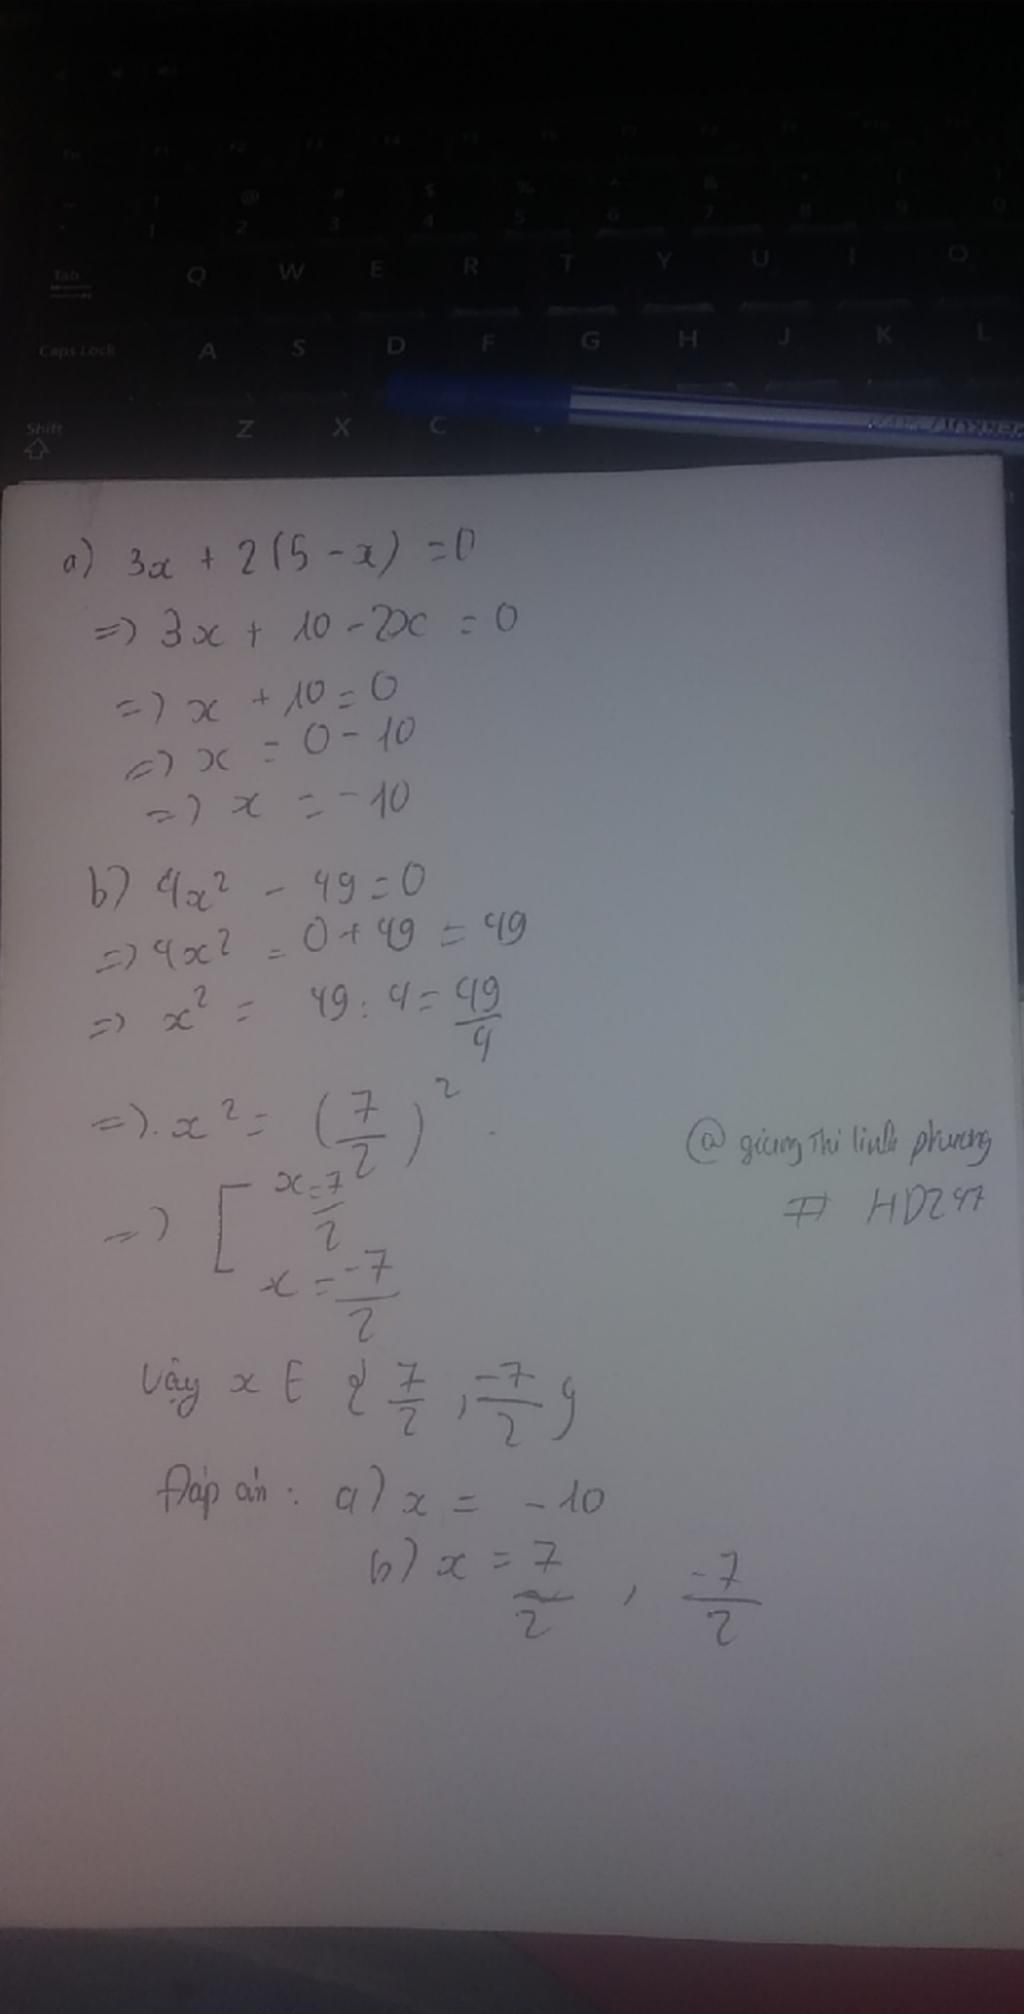 Tab
Q W E R T Y U I O
Caps Lock A S D F G H J K L
Shift Z X C
a) 3x + 2(5 - x) = 0
=) 3x + 10 - 2x = 0
=) x + 10 = 0
=) x = 0 - 10
=) x = -10
b) 4x² - 49 = 0
=) 4x² = 0 + 49 = 49
=) x² = 49 : 4 = 49/4
=). x² = (7/2)²
@ giang Thi linh phuong
# HDZ47
=) [ x = 7/2
x = -7/2
Vậy x ∈ { 7/2 , -7/2 }
Đáp án : a) x = -10
b) x = 7/2 , -7/2